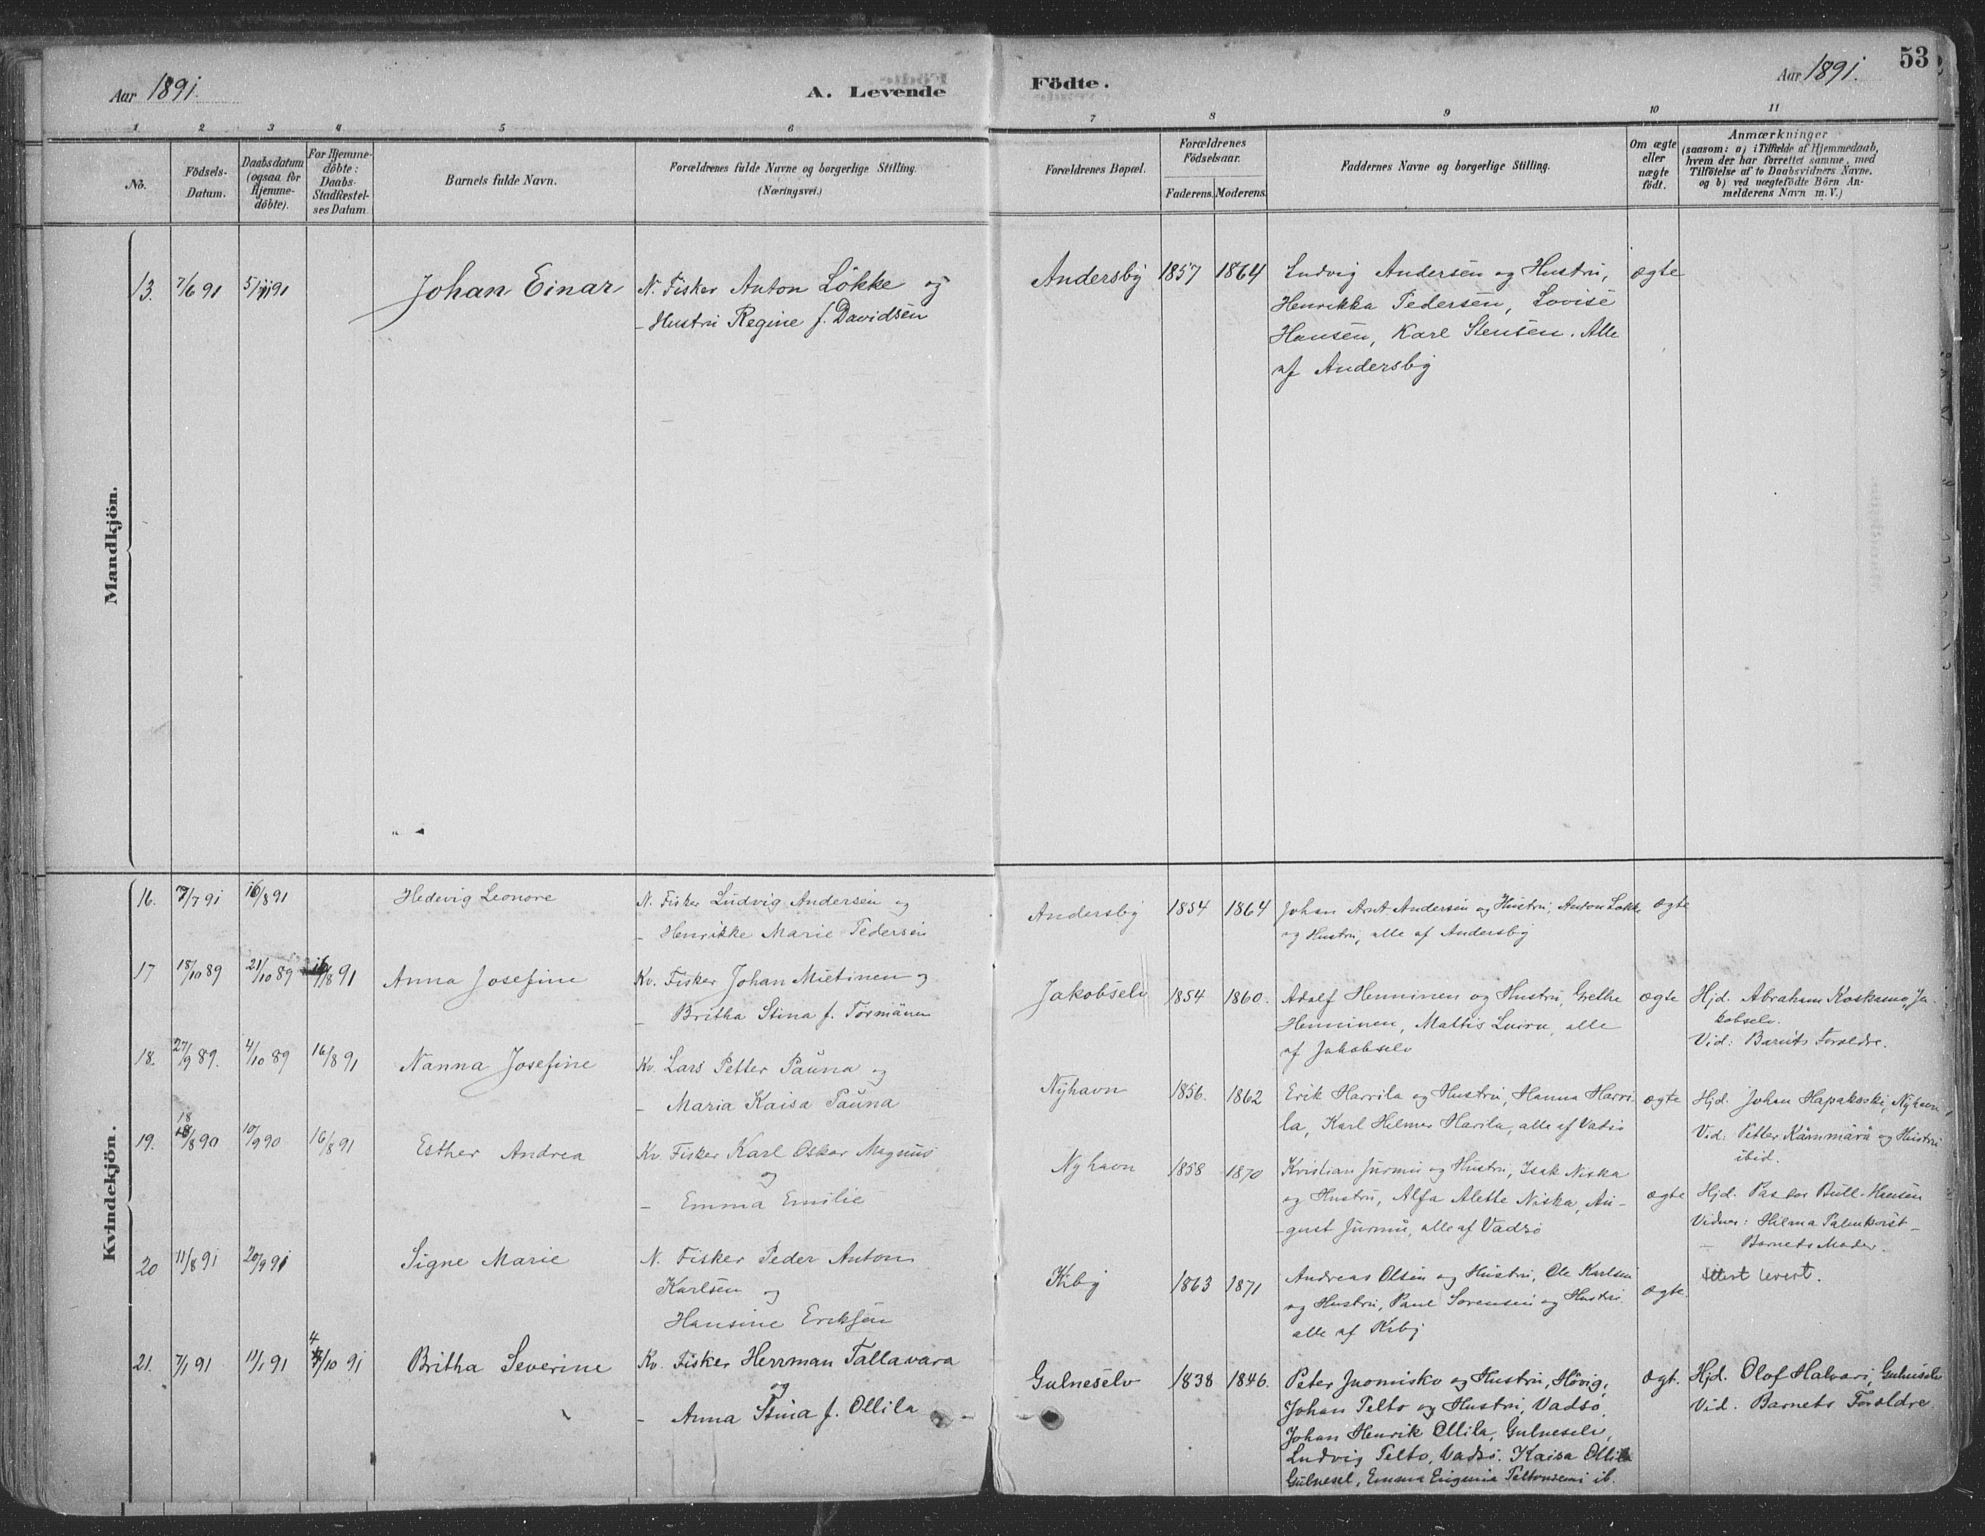 53
Aar 1891.
A. Levende
Födte.
Aar 1891.
1 2 3 4 5 6 7 8 9 10 11
No.
Födsels-
Datum.
Daabsdatum
(ogsaa for
Hjemme-
döbte).
For Hjemme-
döbte:
Daabs-
Stadfæstel-
ses Datum
Barnets fulde Navn.
Forældrenes fulde Navne og borgerlige Stilling.
(Næringsvei.)
Forældrenes Bopæl.
Forældrenes
Födselsaar.
Faderens. Moderens.
Faddernes Navne og borgerlige Stilling.
Om ægte
eller
uægte
födt.
Anmærkninger
(saasom: a) i Tilfælde af Hjemmedaab,
hvem der har forrettet samme, med
Tilföielse af to Daabsvidners Navne.
og b) ved uægtefödte Börn An-
melderens Navn m. V.)
Mandkjön.
13. 7/6 91 5/11 91 Johan Einar N. Fisker Anton Lökke og Andersby 1857 1864 Ludvig Andersen og Hustru, ægte
- Hustru Regine f. Davidsen Henrikka Pedersen, Lovise
Hansen, Karl Stensen. Alle
af Andersby
Kvindekjön.
16. 7/7 91 16/8 91 Hedevig Leonore N. Fisker Ludvig Andersen og Andersby 1854 1864 Johan Arnt Andersen og Hustru, Anton Løkke ægte
- Henrikke Marie Pedersen og Hustru, alle af Andersby
17 18/10 89 21/10 89 16/8 91 Anna Josefine Kv. Fisker Johan Mietinen og Jakobselv 1854 1860. Adolf Henninen og Hustru, Grethe ægte Hjd. Abraham Koskamo, Ja-
- Britha Stina f. Tormänen Henninen, Mattis Luiru, alle kobselv.
af Jakobselv Vid: Barnets Foreldre.
18. 27/9 89. 4/10 89 16/8 91 Nanna Josefine Kv. Lars Petter Pauna og Nyhavn 1856. 1862 Erik Harrila og Hustru, Hanna Harri- ægte Hjd. Johan Hapakoski, Nyhavn,
- Maria Kaisa Pauna la, Karl Hilmer Harila, alle af Vadsö Vid: Petter Kämmärä og Hustru
ibid.
19. 18/8 90 10/9 90 16/8 91 Esther Andrea Kv. Fisker Karl Oskar Magnus Nyhavn 1858 1870 Kristian Jurmu og Hustru, Isak Niska ægte Hjd. Pastor Bull-Hansen
og og Hustru, Alfa Alette Niska, Au- Vidner: Hilma Palmkvist -
- Emma Emilie -gust Jurmu, alle af Vadsö - Barnets Moder.
20 11/8 91 20/9 91 Signe Marie N. Fisker Peder Anton Kiby 1863 1871 Andreas Olsen og Hustru, Ole Karlsen ægte.
Karlsen og og Hustru, Paul Sörensen og Hustru
Hansine Eriksen alle af Kiby
21. 7/1 91 11/1 91 4/10 91 Britha Severine Kv. Fisker Herrman Tallavara Gulneselv 1838 1846. Peter Juomisko og Hustru, Hövig, ægt. Hjd. Olof Halvari, Gulneselv
og Johan Pelto og Hustru, Vadsö, Vid. Barnets Foreldre.
- Anna Stina f. Ollila Johan Henrik Ollila, Gulneselv,
Ludvig Pelto, Vadsö. Kaisa Ollila
Gulnesel, Emma Eugenia Peltonsemi ib.